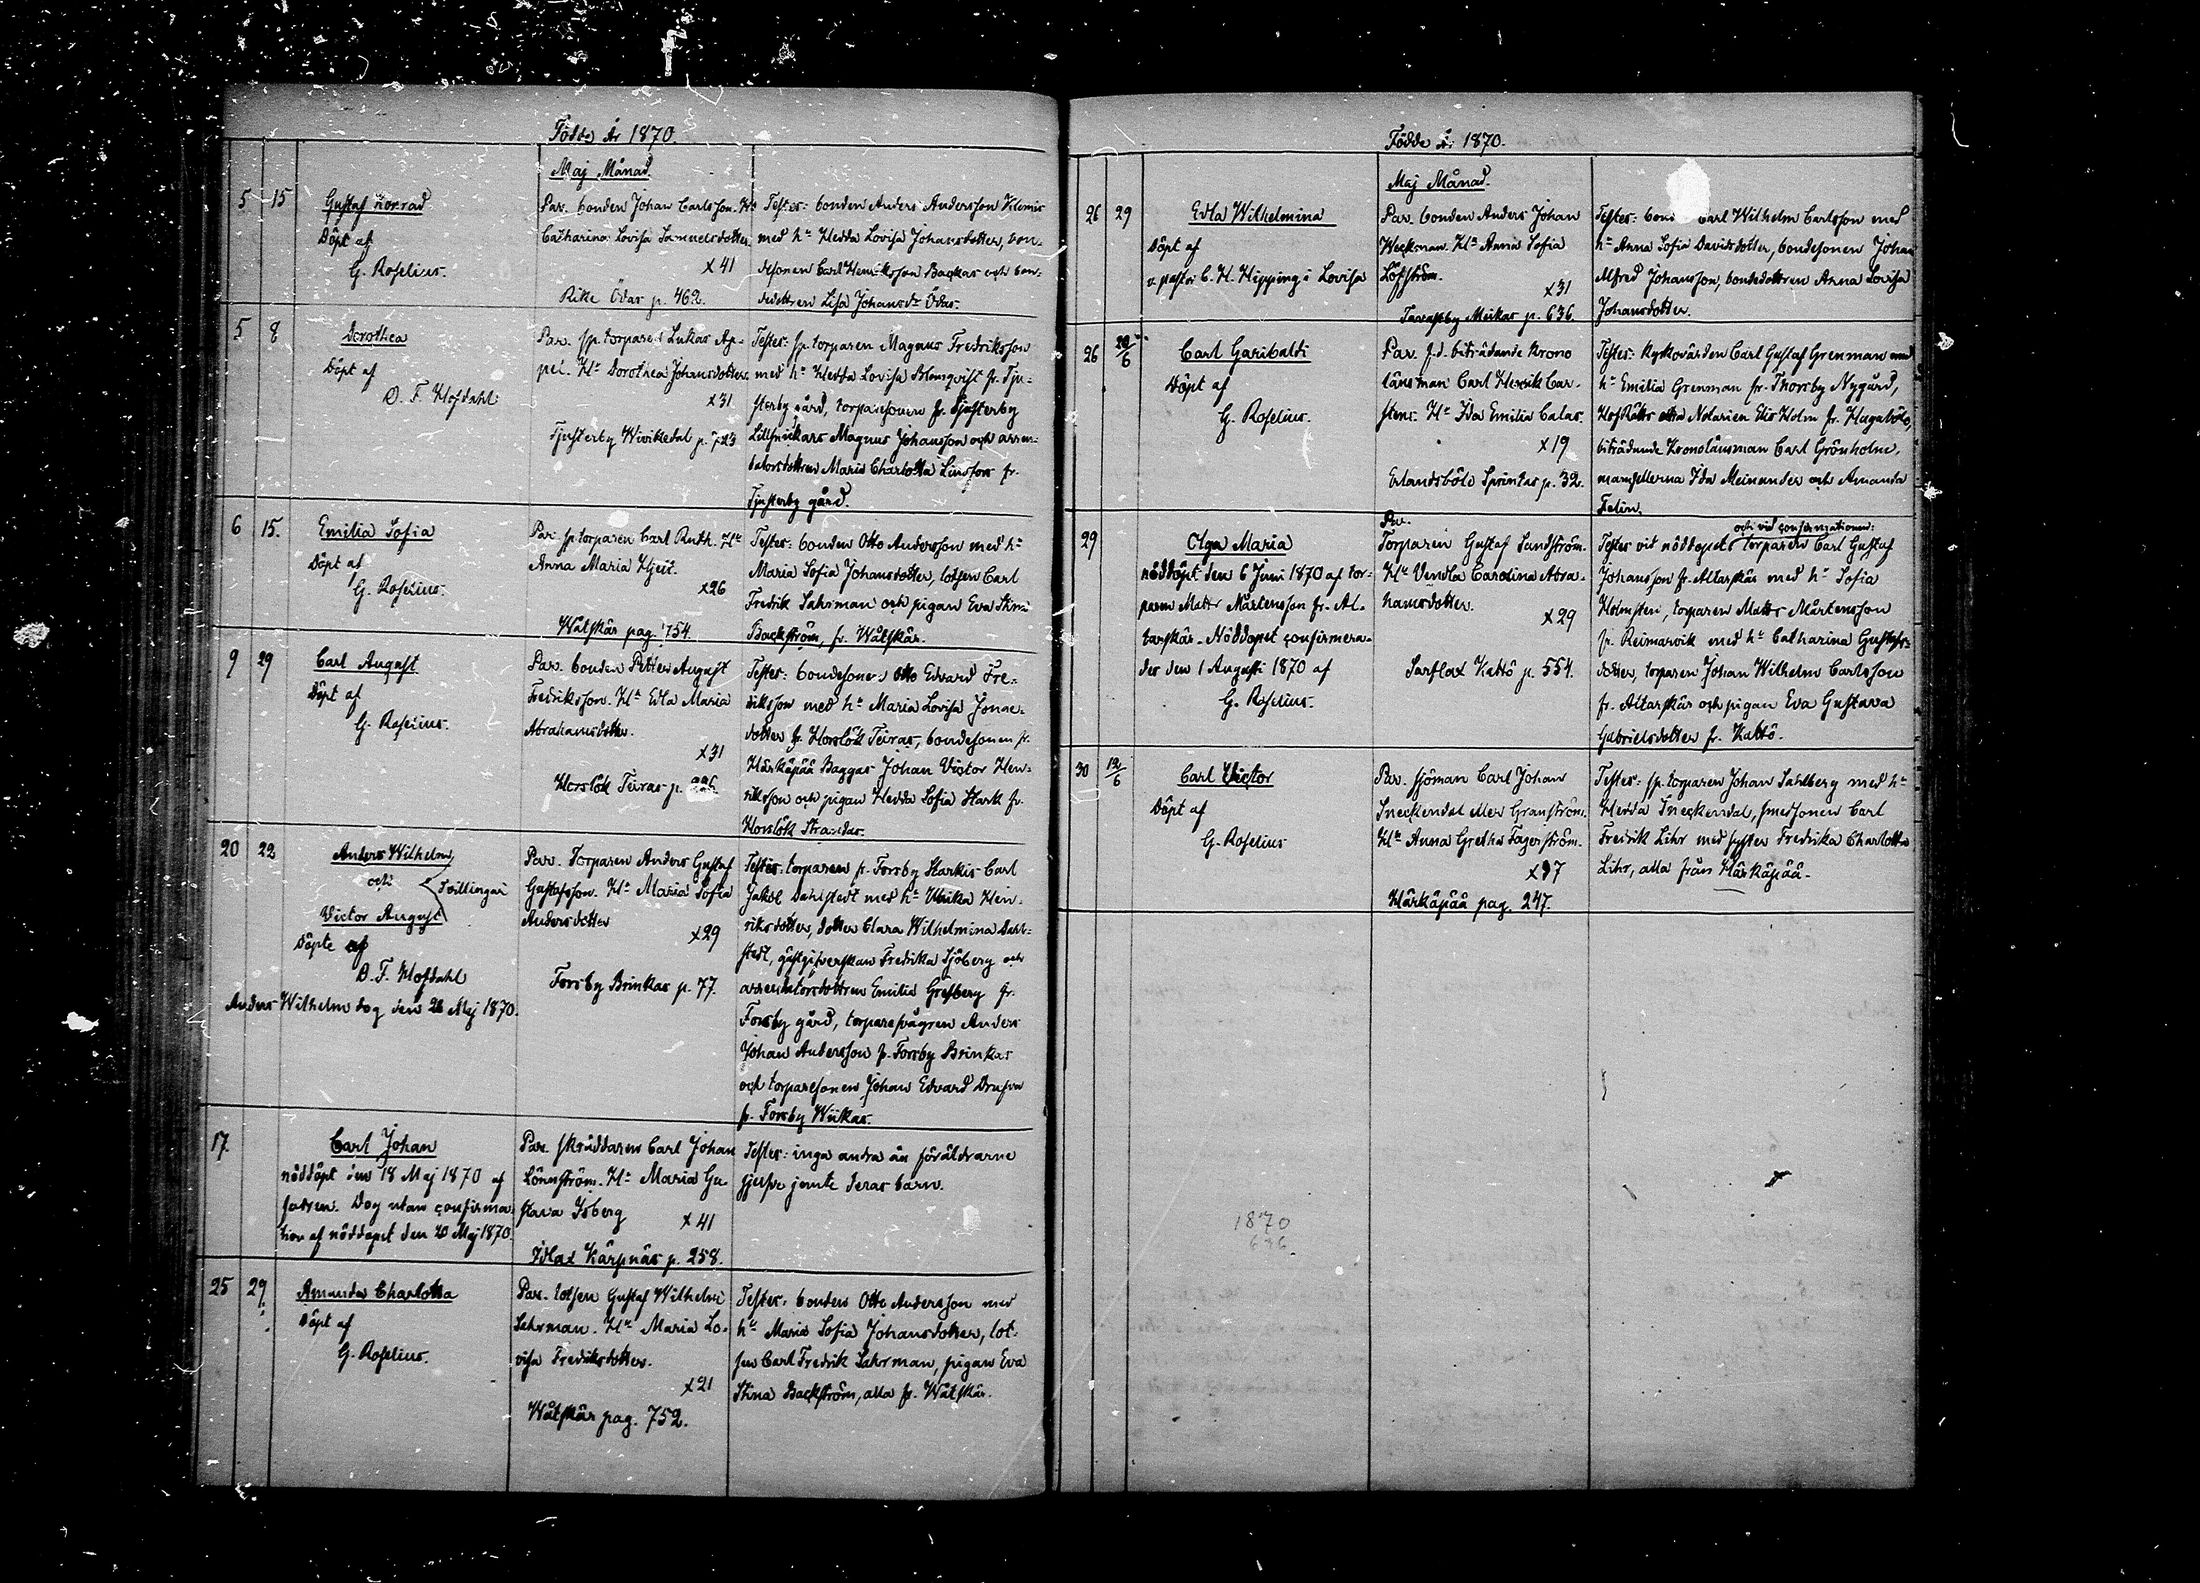 Födde År 1870.
Maj Månad.
5 15 Gustaf Konrad
Döpt af
G. Roselius.
Par. bonden Johan Carlsson. Ho
Catharina Lovisa Samuelsdotter
x41
Rike Ödas p. 462.
Testes: bonden Anders Andersson
med ho Hedda Lovisa Johansdotter, bon-
desonen Carl Henriksson Backas och bon-
dedottren Lisa Johansdr Ödas.
5 8 Dorothea
Döpt af
O. F. Hofdahl
Par. sp. torparen Lukas Ap-
pel. Ho Dorothea Johansdotter.
x31
Tjusterby Wiikedal p. 723
Testes: sp. torparen Magnus Fredriksson
med ho Hedda Lovisa Blomqvist fr. Tju-
sterby gård, torparesonen fr. Tjusterby
Lillsnickars Magnus Johansson och arren-
datorsdottren Maria Charlotta fr.
Tjusterby gård.
6 15. Emilia Sofia
Döpt af
G. Roselius.
Par. sp. torparen Carl Ruth. Ho
Anna Maria
x26
Wåtskär pag. 754.
Testes: bonden Otto Andersson med ho
Maria Sofia Johansdotter, lotsen Carl
Fredrik Sahrman och pigan Eva Stina
Backström, fr. Wåtskär.
9 29 Carl August
Döpt af
G. Roselius.
Par. bonden Petter August
Fredriksson. Ho Edla Maria
Abrahamsdotter.
x31
Horslök Teiras p. 226.
Testes: bondesonen Otto Edvard Fre-
driksson med ho Maria Lovisa Jonae-
dotter fr. Horslök Teiras, bondesonen fr.
Härkäpää Baggas Johan Victor Hen-
riksson och pigan Hedda Sofia Stark fr.
Horslök Strandas.
20 22 Anders Wilhelm
och Tvillingar
Victor August
Döpte af
O. F. Hofdahl
Anders Wilhelm dog den 28 Maj 1870.
Par. Torparen Anders Gustaf
Gustafsson. Ho Maria Sofia
Andersdotter
x29
Forsby Brinkas p. 77.
Testes: torparen fr. Forsby Starkis Carl
Jakob Dahlstedt med ho Ulrika Hen-
riksdotter, dotter Clara Wilhelmina Dahl-
stedt, gästgifverskan Fredrika Sjöberg och
arrendatorsdottren Emilia Gresberg fr.
Forsby gård, torparesvågren Anders
Johan Andersson fr. Forsby Brinkas
och torparesonen Johan Edvard
fr. Forsby Wiikas.
17. Carl Johan
nöddöpt den 18 Maj 1870 af
fadren. Dog utan confirma-
tion af nöddopet den 20 Maj 1870.
Par. skräddaren Carl Johan
Lönnström. Ho Maria Gu-
stava Isberg
x41
Isklax Kärpnäs p. 258.
Testes: inga andra än föräldrarne
sjelfve jemte deras barn.
25 29 Amanda Charlotta
Döpt af
G. Roselius.
Par. lotsen Gustaf Wilhelm
Sahrman. Ho Maria Lo-
visa Fredriksdotter.
x21
Wåtskär pag. 752.
Testes: bonden Otto Andersson med
ho Maria Sofia Johansdotter, lot-
sen Carl Fredrik Sahrman, pigan Eva
Stina Backström, alla fr. Wåtskär.
Födde År 1870.
Maj Månad.
26 29 Edla Wilhelmina
Döpt af
v. pastor C. H. Hipping i Lovisa
Par. bonden Anders Johan
Weckman. Ho Anna Sofia
Löfström.
x31
Tavastby Meikas p. 636.
Testes: bond Carl Wilhelm Carlsson med
ho Anna Sofia Davidsdotter, bondesonen Johan
Alfred Johansson, bondedottren Anna Lovisa
Johansdotter.
26 28/6 Carl Garibaldi
Döpt af
G. Roselius.
Par. f.d. biträdande Krono
länsman Carl Henrik Car-
stens. Ho Ida Emilia
x19
Erlandsböle Sprintas p. 32.
Testes: Kyrkovärden Carl Gustaf Grenman med
ho Emilia Grenman fr. Thorsby Nygård,
HofRätts Notarien Elis Holm fr. Hugoböle,
biträdande Kronolänsman Carl Grönholm,
mamsellerna Ida Meinander och Amanda
Felin.
29 Olga Maria
nöddöpt den 6 Juni 1870 af tor-
paren Matts Mårtensson fr. Al-
tarskär. Nöddopet confirmera-
des den 1 Augusti 1870 af
G. Roselius.
Par.
Torparen Gustaf Sundström.
Ho Vendla Carolina Abra-
hamsdotter.
x29
Sarflax Kattö p. 554.
och vid confirmationen:
Testes vid nöddopet torparen Carl Gustaf
Johansson fr. Altarskär med ho Sofia
Holmsten, torparen Matts Mårtensson
fr. Reimarsvik med ho Catharina Gustafs-
dotter, torparen Johan Wilhelm Carlsson
fr. Altarskär och pigan Eva Gustava
Gabrielsdotter fr. Kattö.
30 12/6 Carl Victor
Döpt af
G. Roselius
Par. sjöman Carl Johan
Sneckendal eller Granström.
Ho Anna Greta Fagerström.
x37
Härkäpää pag. 247.
Testes: sp. torparen Johan Sahlberg med ho
Hedda Sneckendal, smedsonen Carl
Fredrik Lihr med syster Fredrika Charlotta
Lihr, alla från Härkäpää.
1870
636